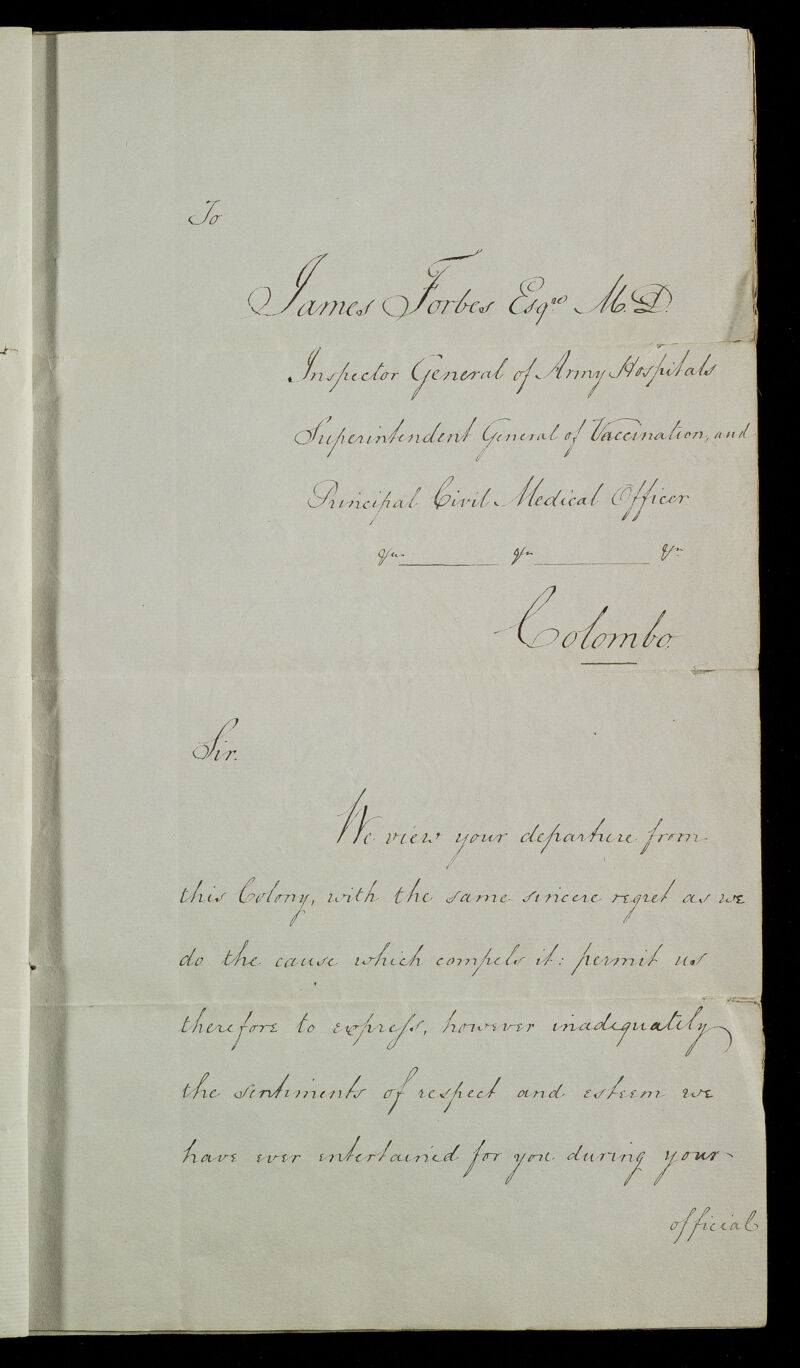 To
James Forbes Esqre M.D.
Inspector General of Army Hospitals
Superintendent General of Vaccination, and
Principal Civil Medical Officer
&c. &c. &c.
Colombo.
Sir.
We view your departure from
this Colony, with the same sincere regret as we
do the cause which compels it: permit us
therefore to express, however inadequately
the sentiments of respect and esteem we
have ever entertained for you during your
official